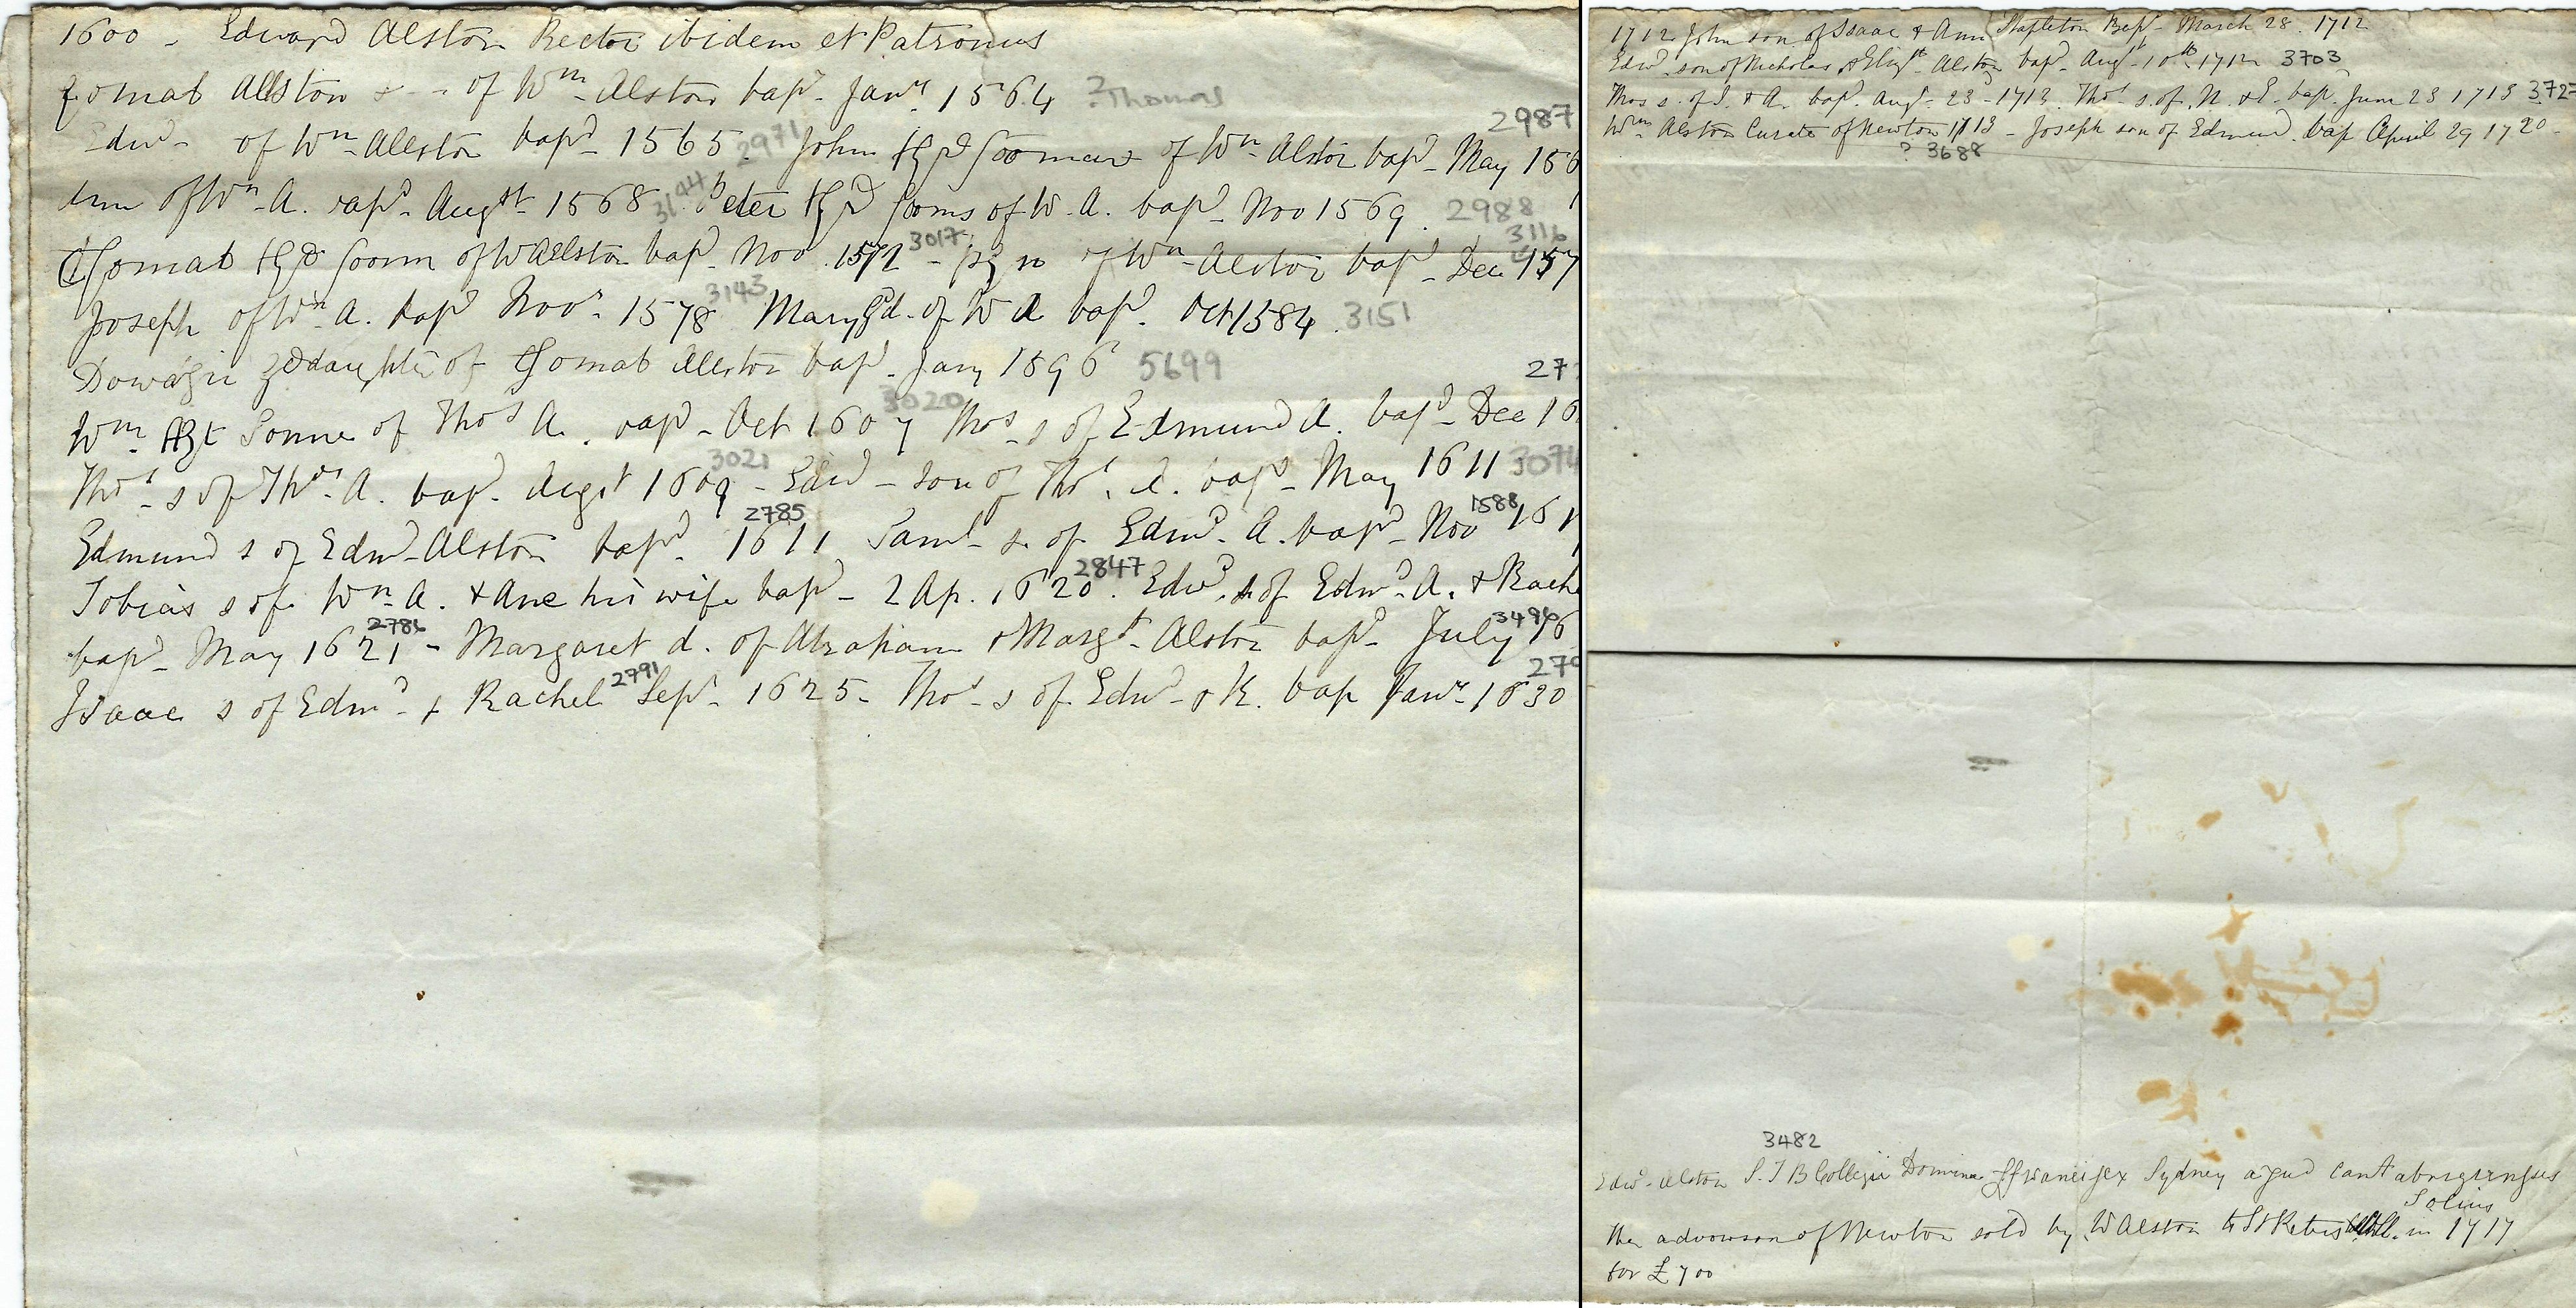 1600 - Edward Alston Rector ibidem et Patronus
Allston of Wm Alston bapd Jany 1564 ? Thomas
Edwd of Wm Allston bapd 1565 2971 John of Wm Alston bapd May 156 2987
of Wm A. bapd Augst 1568 3144 Peter the soons of W. A. bapd Nov 1569 2988
soonn of W Allston bapd Nov 1572 3017 - of Wm Alston bapd Dec 157 3116
Joseph of Wm A. bapd Novr 1578 3143 Mary d. of W A bapd Oct 1584. 3151
daughter of Allston bapd Jany 1596 5699
Wm Sonne of Thos A. bapd Oct 1607 3020 Thos s of Edmund A. bapd Dec 16 27
Thos s of Thos A. bapd Augst 1609 3021 - Edwd - son of Thos A. bapd May 1611 3074
Edmund s of Edwd Alston bapd 1611 2785 Saml s. of Edmd A. bapd Nov 161 1588
Tobias s of Wm A. & Ane his wife bapd - 2 Ap. 1620 2847. Edwd s of Edmd A. & Rache
bapd May 1621 2786 - Margaret d. of Abraham & Margt Alston bapd July 16 3496
Isaac s of Edmd & Rachel 2791 Sepr 1625 - Thos s of Edwd & R. bap Jany 1630 279
1712 John son of Isaac & Ann Stapleton Bapd March 28. 1712
Edwd son of Nicholas & Elizth Alston bapd Augt 10th 1712 3703
Thos s. of I. & A. bapd Augt 23 - 1713. Thos s. of N. & E. bap. June 23 1713 372
Wm Alston Curate of Newton 1713 - Joseph son of Edmund bap April 29 1720
? 3688
3482
Edwd Alston S. T B Collegii Domine Sydney apud
Socius
the advowson of Newton sold by W Alston to St Peters in 1717
for £700